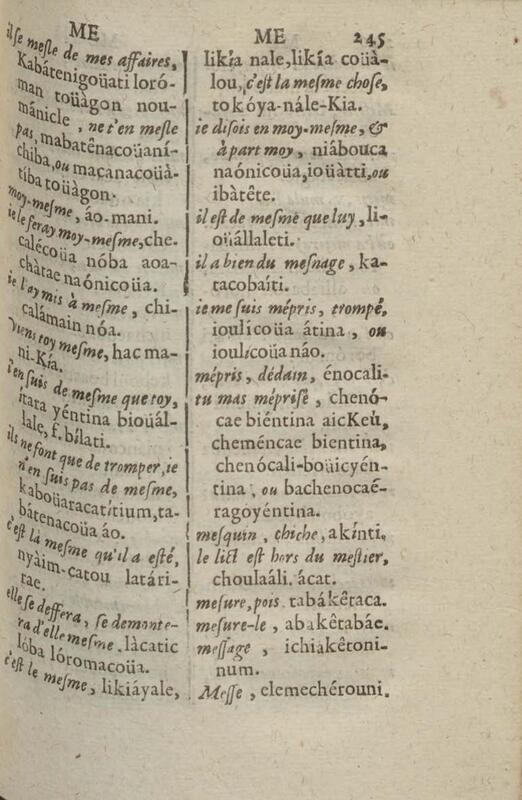 ME
ilse mesle de mes affaires,
Kabátenigoüati loró-
man toüàgon nou-
mánicle , ne t'en mesle
pas, mabatênacoüaní-
chiba, ou maçanacoüà-
tíba toüàgon.
moy-mesme, áo-mani.
ie le feray moy-mesme, che.
calécoüa nóba aoa-
chàtae naónicoüa.
ie l'ay mis à mesme, chi-
calámain nóa.
Viens toy mesme, hac ma-
ni-Kía.
i'en suis de mesme que toy,
ítara yéntina bioüál-
lale, f. bílati.
ils ne font que de tromper, ie
n'en suis pas de mesme,
kaboüaracatítium, ta-
bátenacoüa áo.
c'est là mesme qu'il a esté,
nyàim-catou latári-
rae.
elle se deffera, se demonte-
ra d'elle mesme. làcatic
lóba lóromacoüa.
c'est le mesme, likiáyale,
ME 245
likía nale, likía coüà-
lou, c'est la mesme chose,
tokóya-nále-Kia.
ie disois en moy-mesme, &
à part moy, niábouca
naónicoüa, ioüàtti, ou
ibàtête.
il est de mesme que luy, li-
oüállaleti.
il a bien du mesnage, ka-
tacobaíti.
ie me suis mépris, trompé,
ioulícoüa átina , ou
ioulícoüa náo.
mépris, dédain, énocali-
tu mas méprisé , chenó-
cae biéntina aicKeù,
cheméncae bientina,
chenócali-boüicyén-
tina, ou bachenocaé-
ragoyéntina.
mesquin, chiche, akínti.
le lict est hors du mestier,
choulaáli. ácat.
mesure, pois. tabákêtaca.
mesure-le , abakêtabáe.
message , ichiakêtoni-
num.
Messe , elemechérouni.